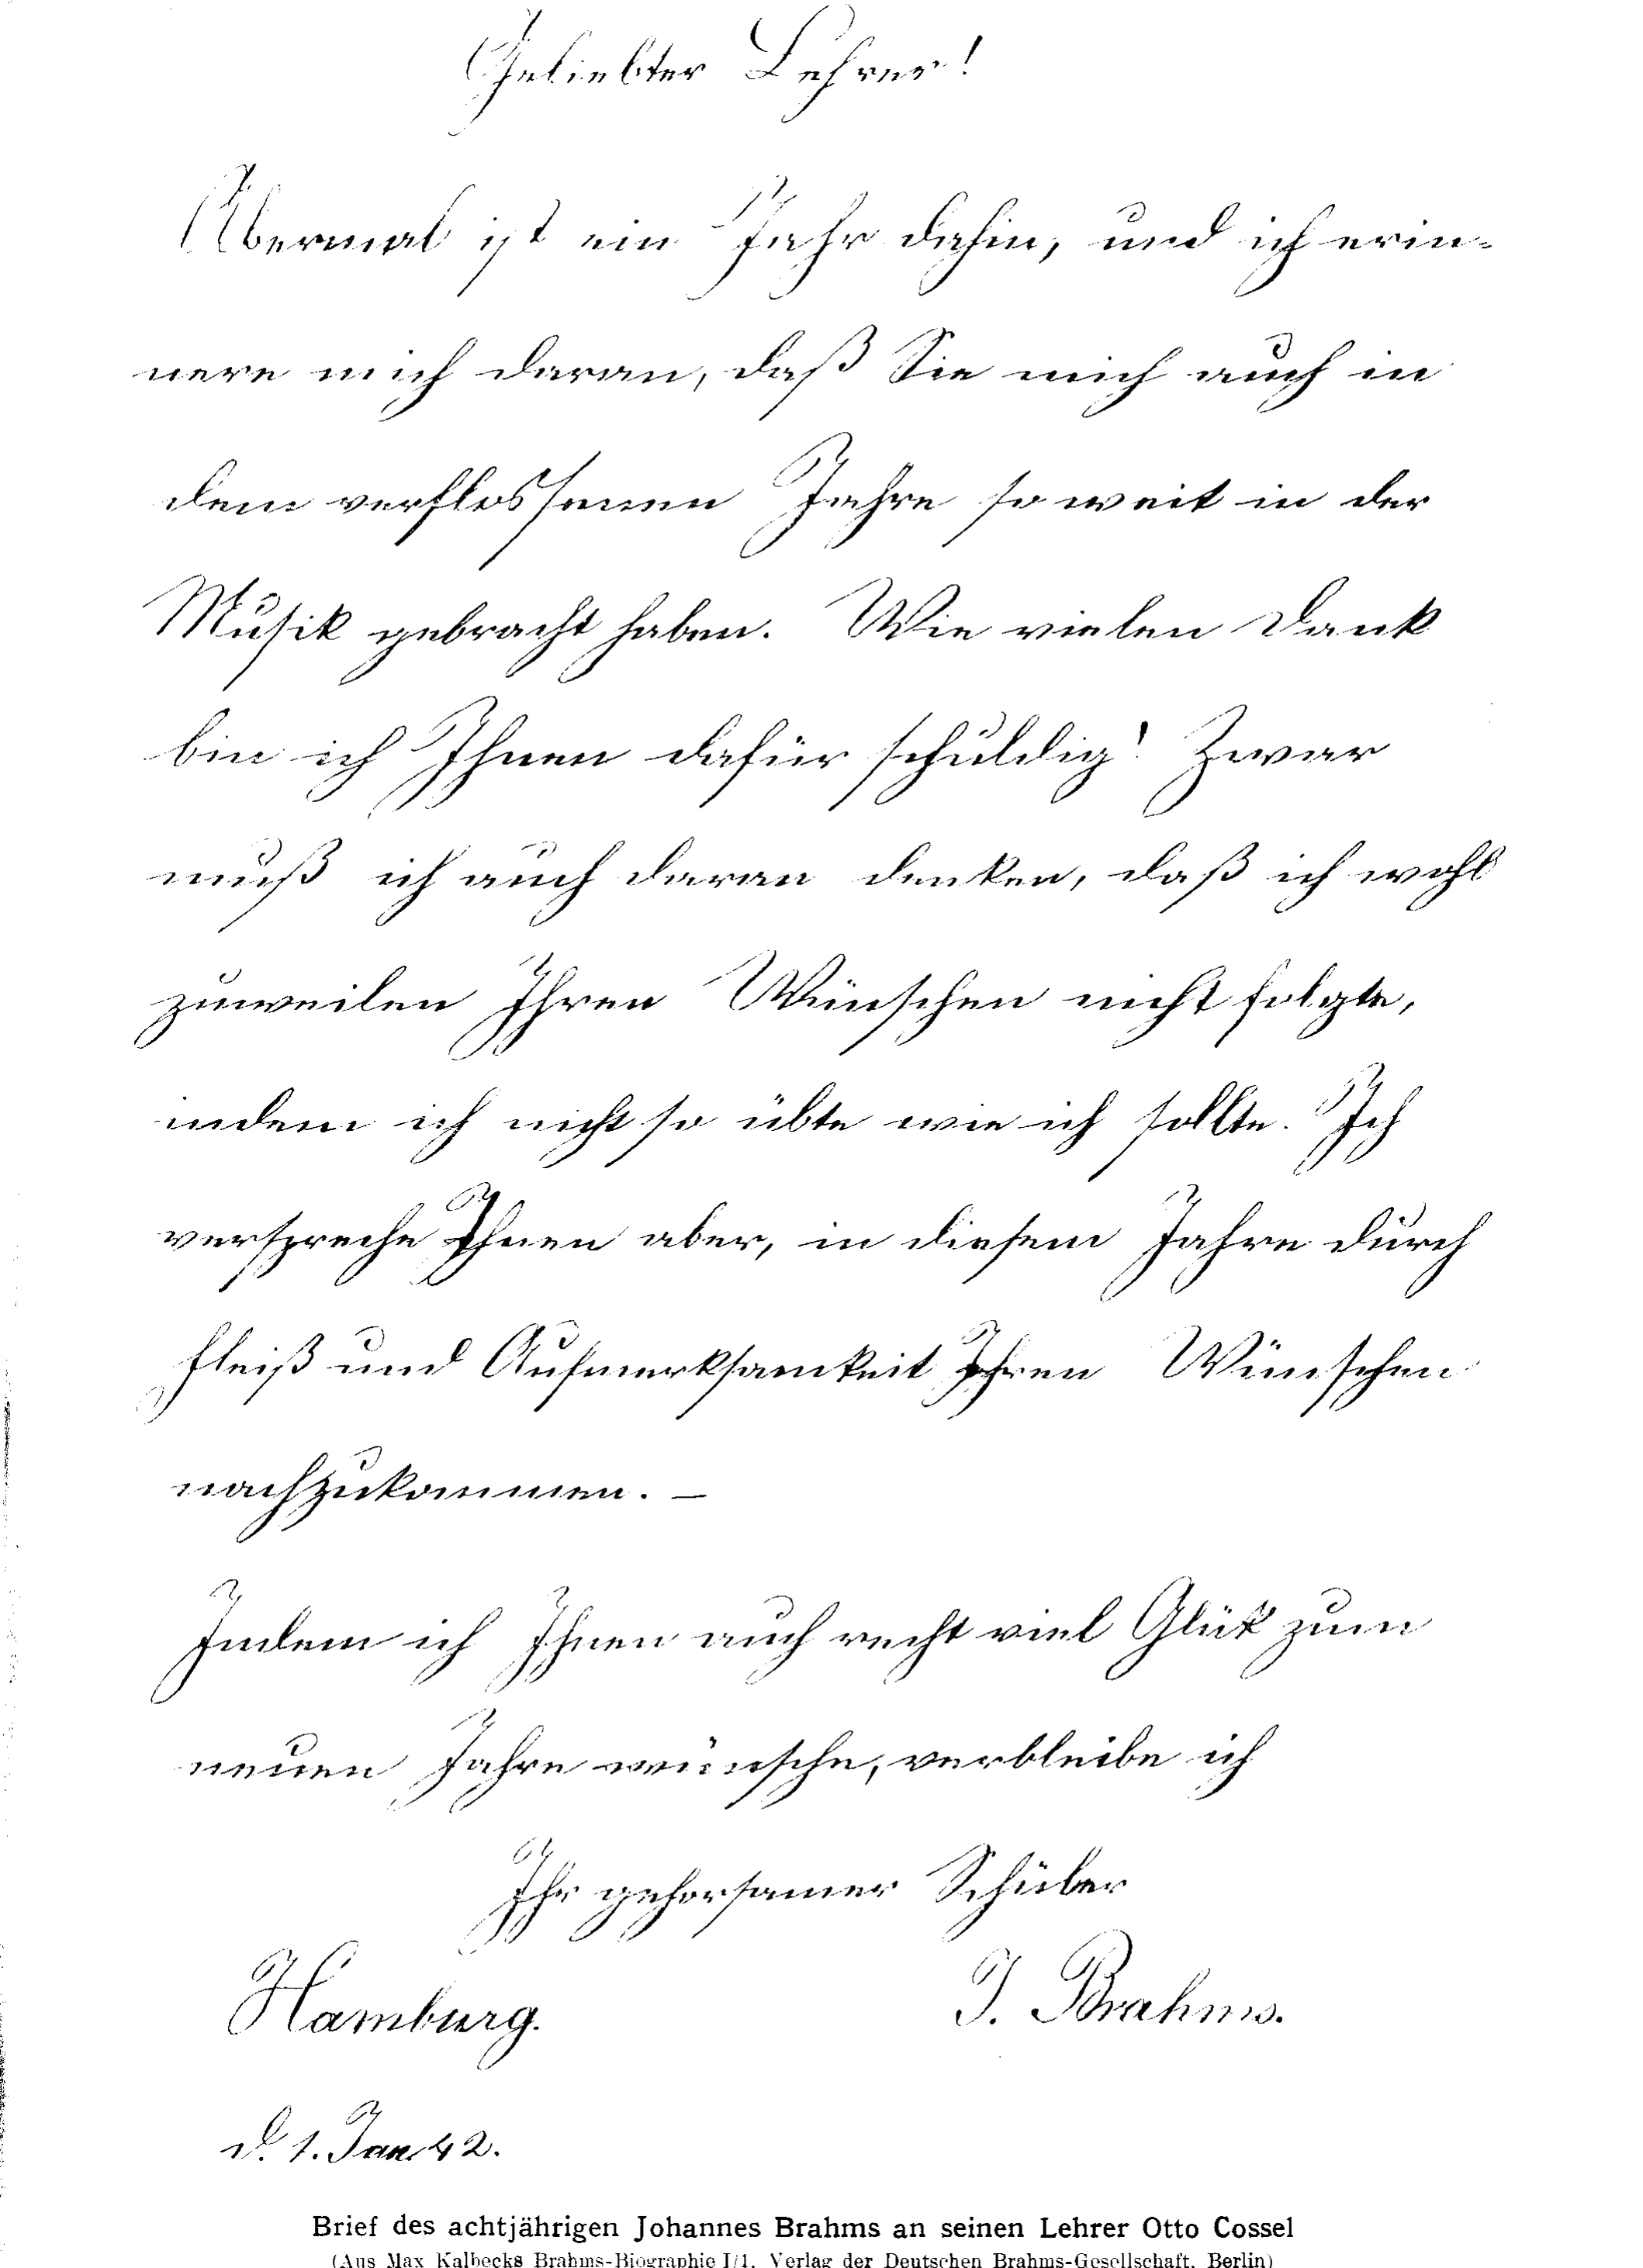 Geliebter Lehrer!
Abermal ist ein Jahr dahin, und ich erin-
nere mich daran, daß Sie mich auch in
dem verflossenen Jahre so weit in der
Musik gebracht haben. Wie vielen Dank
bin ich Ihnen dafür schuldig! Zwar
muß ich auch daran denken, daß ich wohl
zuweilen Ihren Wünschen nicht folgte,
indem ich nicht so übte wie ich sollte. Ich
verspreche Ihnen aber, in diesem Jahre durch
Fleiß und Aufmerksamkeit Ihren Wünschen
nachzukommen. —
Indem ich Ihnen auch recht viel Glük zum
neuen Jahre wünsche, verbleibe ich
Ihr gehorsamer Schüler
Hamburg. J. Brahms.
d. 1. Jan. 42.
Brief des achtjährigen Johannes Brahms an seinen Lehrer Otto Cossel
(Aus Max Kalbecks Brahms-Biographie I/1. Verlag der Deutschen Brahms-Gesellschaft, Berlin)